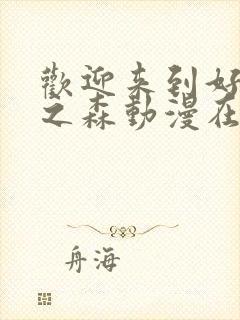 歡迎来到好
之森動漫在
舟海